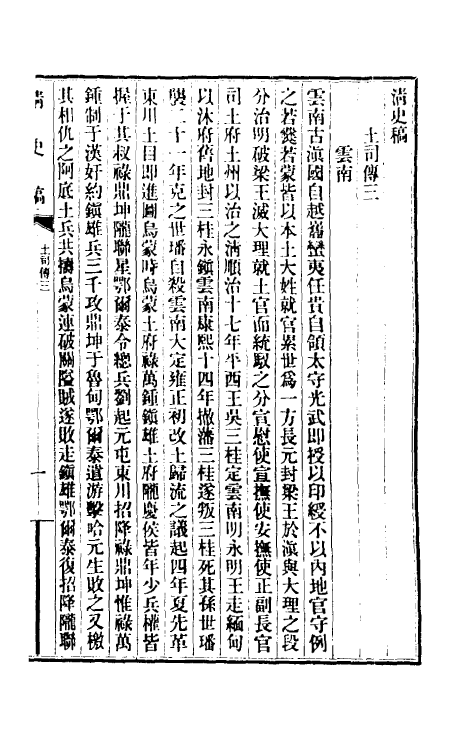 清史稿
土司傳三
雲南
雲南古滇國自越嶲蠻夷任貴自領太守光武即授以印綬不以內地官守例
之若爨若蒙皆以本土大姓就官累世爲一方長元封梁王於滇與大理之段
分治明破梁王滅大理就土官而統馭之分官慰使宣撫使安撫使正副長官
司土府土州以治之淸順治十七年平西王吳三桂定雲南明永明王走緬甸
以沐府舊地封三桂永鎭雲南康熙十四年撤藩三桂遂叛三桂死其孫世璠
襲二十一年克之世璠自殺雲南大定雍正初改土歸流之議起四年夏先革
東川土目卽進圖烏蒙時烏蒙土府祿萬鍾鎭雄土府隴慶侯皆年少兵權皆
握于其叔祿鼎坤隴聯星鄂爾泰令總兵劉起元屯東川招降祿鼎坤惟祿萬
鍾制于漢奸約鎭雄兵三千攻鼎坤于魯甸鄂爾泰遣游擊哈元生敗之又檄
其相仇之阿底土兵共擣烏蒙連破關隘賊遂敗走鎭雄鄂爾泰復招降隴聯
清史稿
土司傳三
一